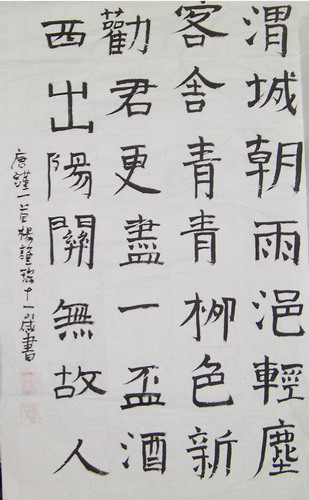 渭城朝雨浥輕塵
客舍青青柳色新
勸君更盡一盃酒
西出陽關無故人
唐詩一首 楊 十一歲書